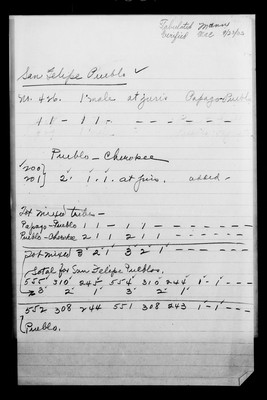 Tabulated Mann
Verified
San Felipe Pueblo ✓
1 male at juris Papago-Pueblo
1 1 - 1 1 - - - - - - -
Pueblo - Cherokee
200
201 } 2 1 1 at juris. added -
Tot mixed tribes -
Papago-Pueblo 1 1 - 1 1 - - - - - -
Pueblo-Cherokee 2 1 1 2 1 1 - - - - - -
Tot mixed 3 2 1 3 2 1 - - - - - -
Total for San Felipe Pueblos.
555 310 245 554 310 244 1 - 1 - - -
3 2 1 3 2 1
552 308 244 551 308 243 1 - 1 - - - -
Pueblo.